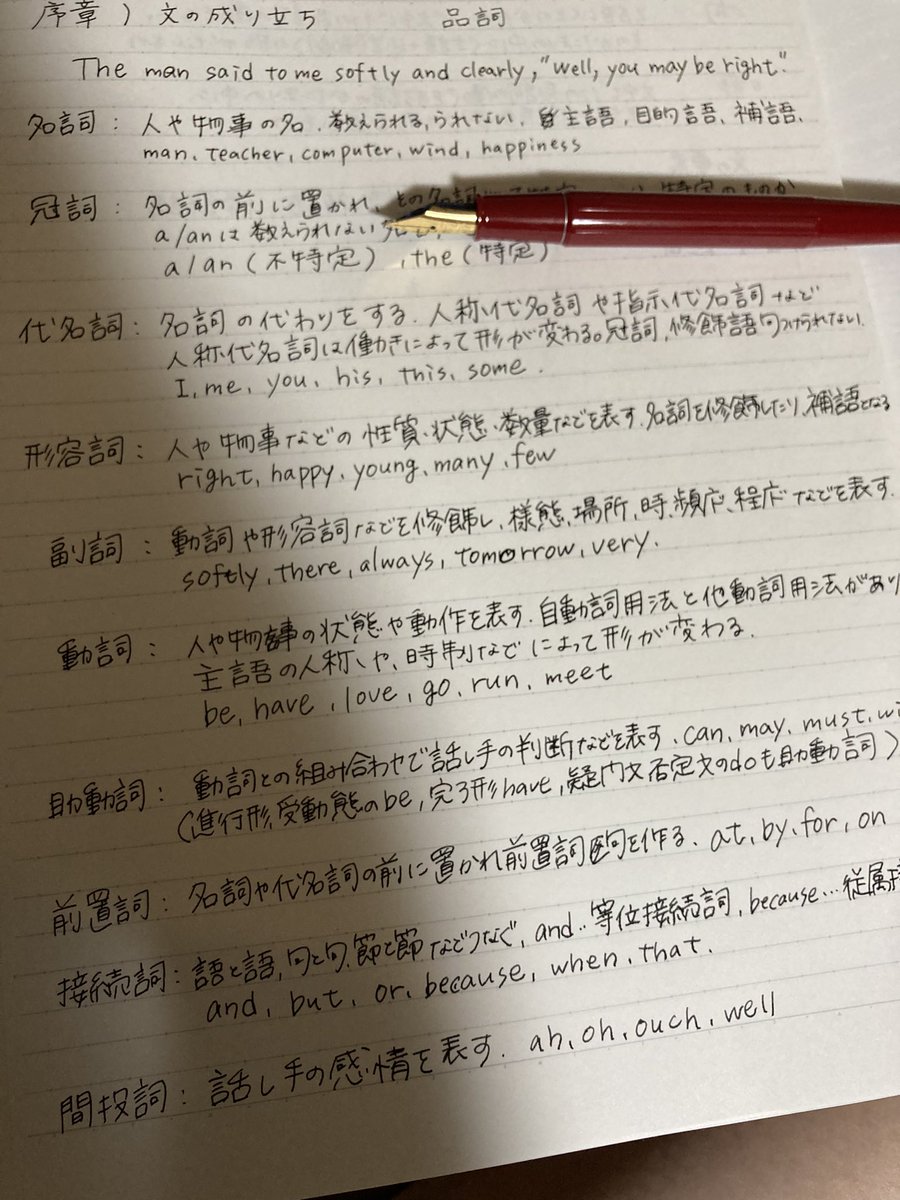 序章）文の成り立ち 品詞
The man said to me softly and clearly, "Well, you may be right".
名詞：人や物事の名．数えられる，られない．主語，目的語、補語、
man, teacher, computer, wind, happiness
冠詞：名詞の前に置かれ、その名詞 特定のものか
a/anは数えられない
a/an（不特定），the（特定）
代名詞：名詞の代わりをする．人称代名詞や指示代名詞など
人称代名詞は働きによって形が変わる。冠詞，修飾語句つけられない．
I, me, you, his, this, some.
形容詞：人や物事などの性質、状態、数量などを表す．名詞を修飾したり、補語となる
right, happy, young, many, few
副詞：動詞や形容詞などを修飾し、様態、場所，時、頻度、程度などを表す．
softly, there, always, tomorrow, very.
動詞：人や物事の状態や動作を表す．自動詞用法と他動詞用法があり
主語の人称、や、時制などによって形が変わる．
be, have, love, go, run, meet
助動詞：動詞との組み合わせで話し手の判断などを表す．can, may, must, wi
（進行形，受動態のbe，完了形have，疑問文否定文のdoも助動詞）
前置詞：名詞や代名詞の前に置かれ前置詞句を作る．at, by, for, on
接続詞：語と語，句と句，節と節などつなぐ，and‥等位接続詞，because…従属
and, but, or, because, when, that.
間投詞：話し手の感情を表す．ah, oh, ouch, well